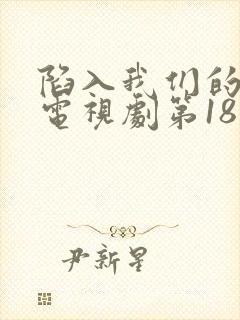 陷入我们的
電視劇第18
尹新星